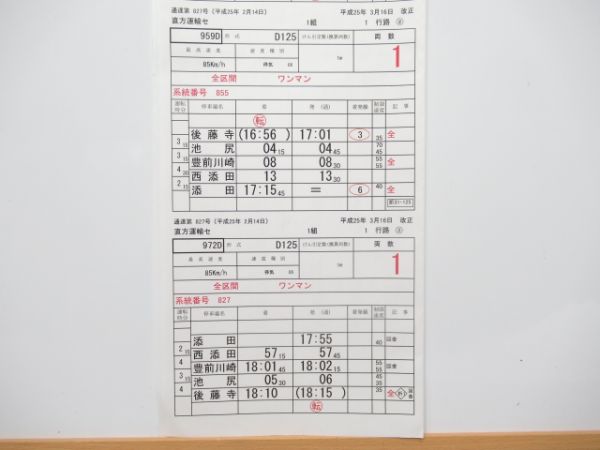 通達第 827号 (平成25年 2月14日) 平成25年 3月16日 改正
直方運輸セ 1組 1 行路
959D 形 式 D125 けん引定数(換算両数) 両 数
最 高 速 度 速 度 種 別 1
85Km/h 停気
全区間 ワンマン
系統番号 855
運転時分 停車場名 着 発 (通) 着発線 制限速度 記 事
転
後藤寺 (16:56 ) 17:01 3 35 全
3 池 尻 04 15 04 45 70 45
豊前川崎 08 08 30 55 55 全
西添田 13 13 30
添 田 17:15 45 = 6 40 全
通達第 827号 (平成25年 2月14日) 平成25年 3月16日 改正
直方運輸セ 1組 1 行路
972D 形 式 D125 けん引定数(換算両数) 両 数
最 高 速 度 速 度 種 別 1
85Km/h 停気
全区間 ワンマン
系統番号 827
運転時分 停車場名 着 発 (通) 着発線 制限速度 記 事
添 田 17:55 40
2 西添田 57 15 57 45
4 豊前川崎 18:01 45 18:02 15 55 55
3 池 尻 05 30 06 45 35
4 後藤寺 18:10 (18:15 ) 35 全
転